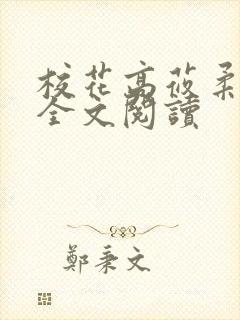 校花高莜柔
全文閱讀
鄭秉文